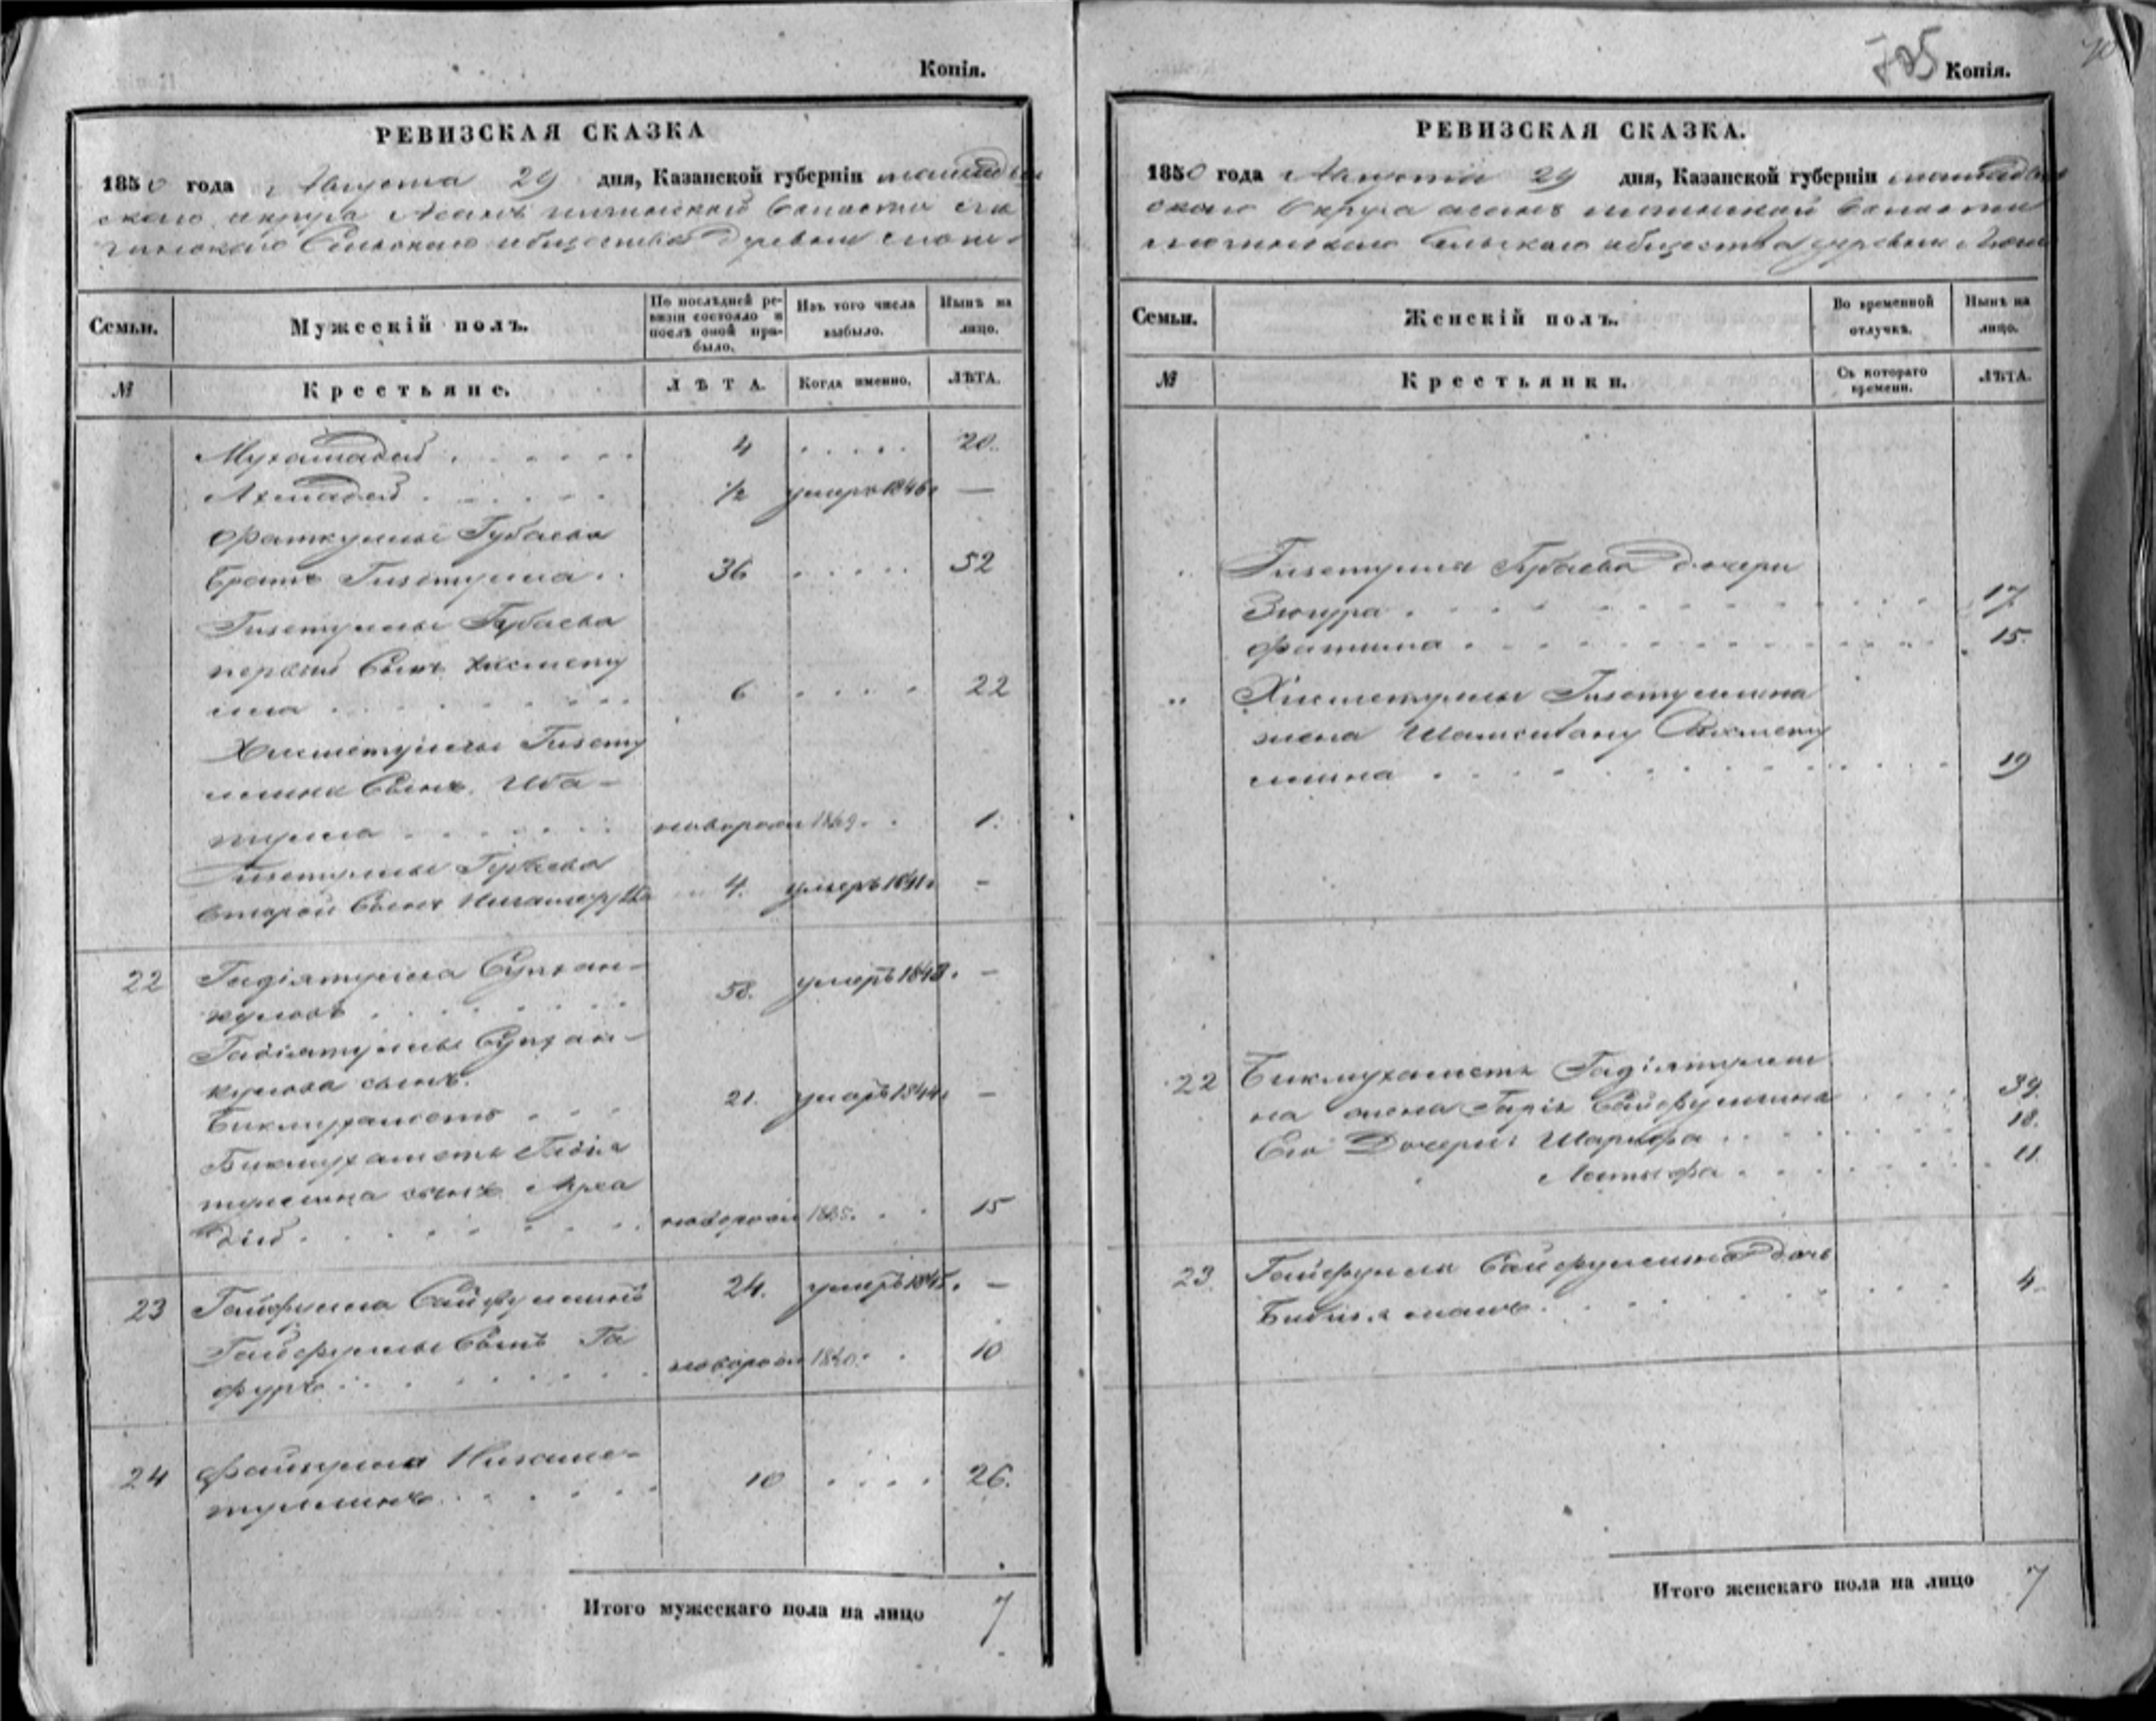 Копія.
РЕВИЗСКАЯ СКАЗКА
1850 года Августа 29 дня, Казанской губерніи мамадыш
скаго округа волости
Сельскаго общества Деревни
Семьи. Мужескій полъ. По послѣдней ревизіи состояло и послѣ оной прибыло. Изъ того числа выбыло. Нынѣ на лицо.
№ Крестьяне. ЛѢТА. Когда именно. ЛѢТА.
Мухамадей 4 20.
Ахмадей 1/2 умеръ 1846 —
Фаткуллы Губаева
братъ Гизетулла 36 52
Гизетуллы Губаева
первой Сынъ Хисмету
лла 6 22
Хисметуллы Гизету
ллина Сынъ Иба-
тулла новорож 1849. 1.
Гизетуллы Губаева
второй Сынъ 4. умеръ 1841 -
22 Гадіятулла Супхан-
куловъ 58. умеръ 1848. -
Гадіятуллы Супхан-
кулова сынъ.
Бикмухаметъ 21. умеръ 1844 -
Бикмухаметъ Гадія
туллина сынъ
дій новорож 15
23 Гайфулла Сайфуллинъ 24. умеръ —
Гайфуллы Сынъ Га
фуръ новорож 1840. 10
24 Файзулла Нигаме-
туллинъ 10 26.
Итого мужескаго пола на лицо 7
705 Копія.
РЕВИЗСКАЯ СКАЗКА.
1850 года Августа 29 дня, Казанской губерніи мамадыш
скаго Округа волости
Сельскаго общества деревни
Семьи. Женскій полъ. Во временной отлучкѣ. Нынѣ на лицо.
№ Крестьянки. Съ котораго времени. ЛѢТА.
Гизетулла Губаева дочери
Зюгура 17.
Фатима 15.
Хисметуллы Гизетуллина
жена Шамсибану Хисмету
ллина 19
22 Бикмухаметъ Гадіятулли
на жена Сайфуллина 39.
Его Дочери: Шарифа 18.
Латыфа 11.
23. Гайфулла Сайфуллина дочь
4.
Итого женскаго пола на лицо 7